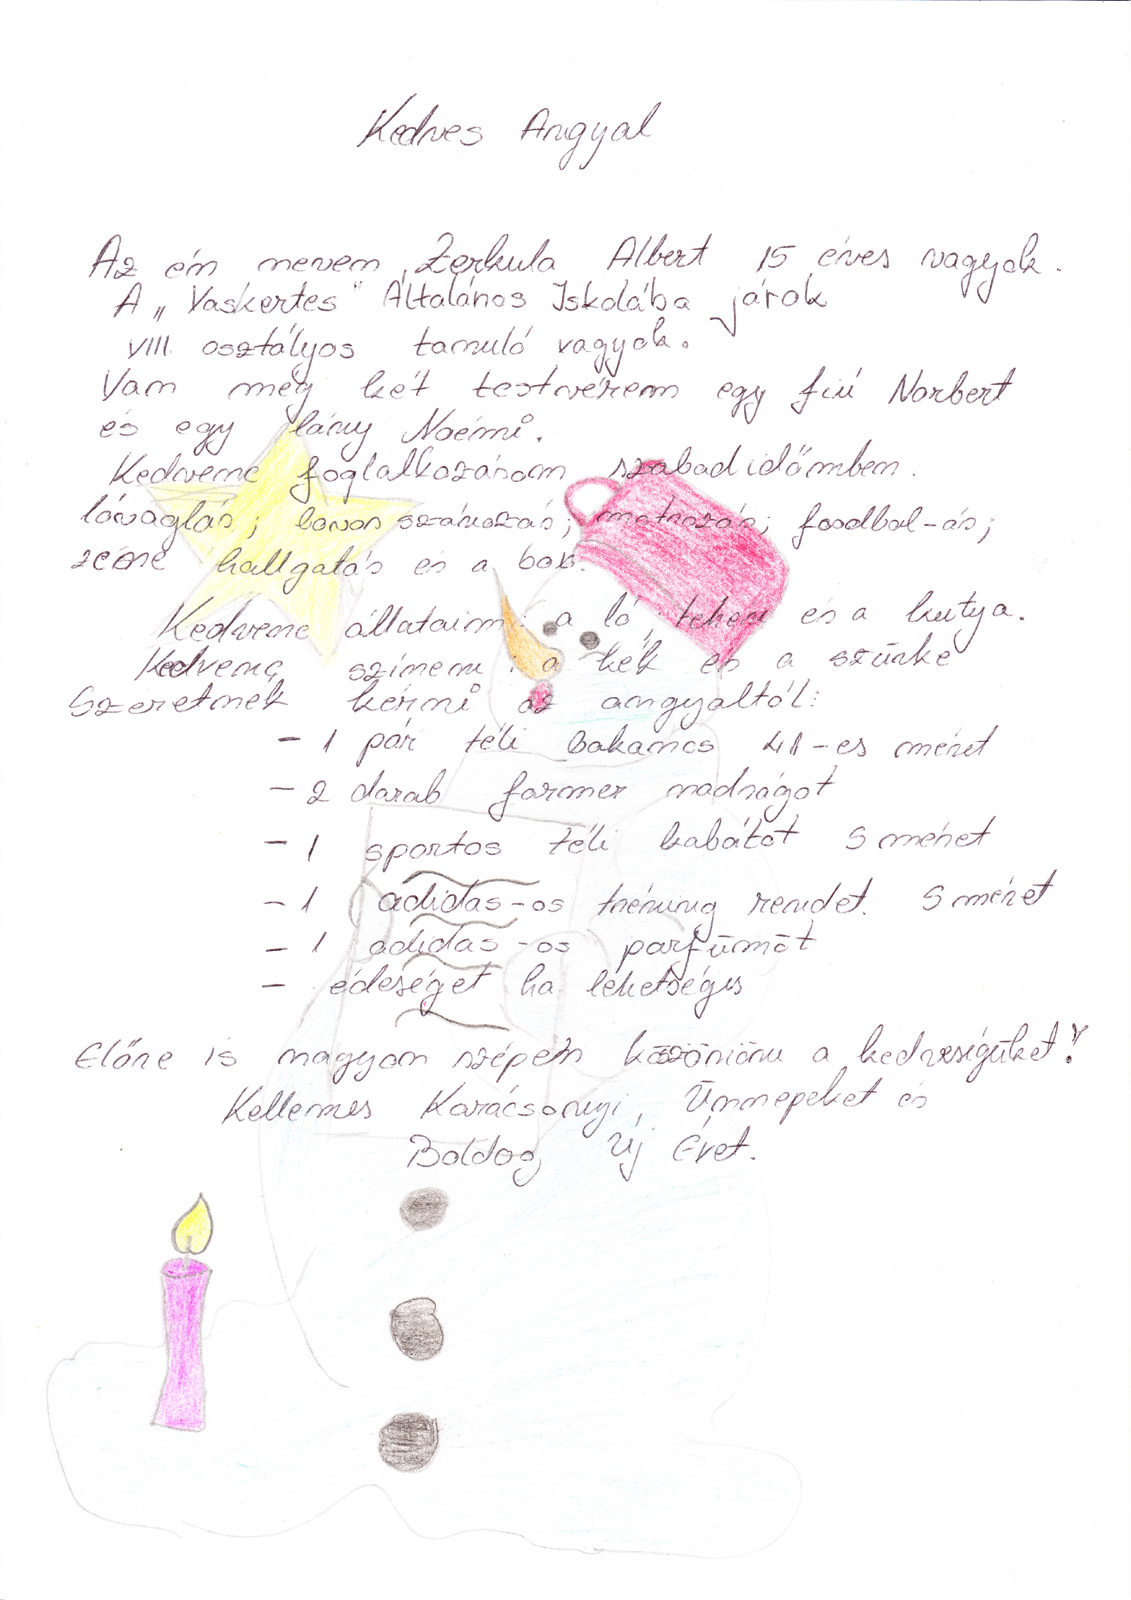 Kedves Angyal
Az én nevem Zerkula Albert 15 éves vagyok.
A „Vaskertes" Általános Iskolába járok
VIII. osztályos tanuló vagyok.
Van még két testvérem egy fiú Norbert
és egy lány Noémi.
Kedvenc foglalkozásom szabadidőmben.
lóvaglás; lovas szánozás; matrozás; foodbal-ás;
zene hallgatás és a box.
Kedvenc állataim: a ló, tehen és a kutya.
Kedvenc színem: a kék és a szürke
Szeretnék kérni az angyaltól:
- 1 pár téli bakancs 41-es méret
- 2 darab farmer nadrágot
- 1 sportos téli kabátot S méret
- 1 adidas-os tréning rendet. S méret
- 1 adidas-os parfümöt
- édeséget ha lehetséges
Előre is nagyon szépen köszönönu a kedvességüket!
Kellemes Karácsonyi, Ünnepeket és
Boldog Új Évet.